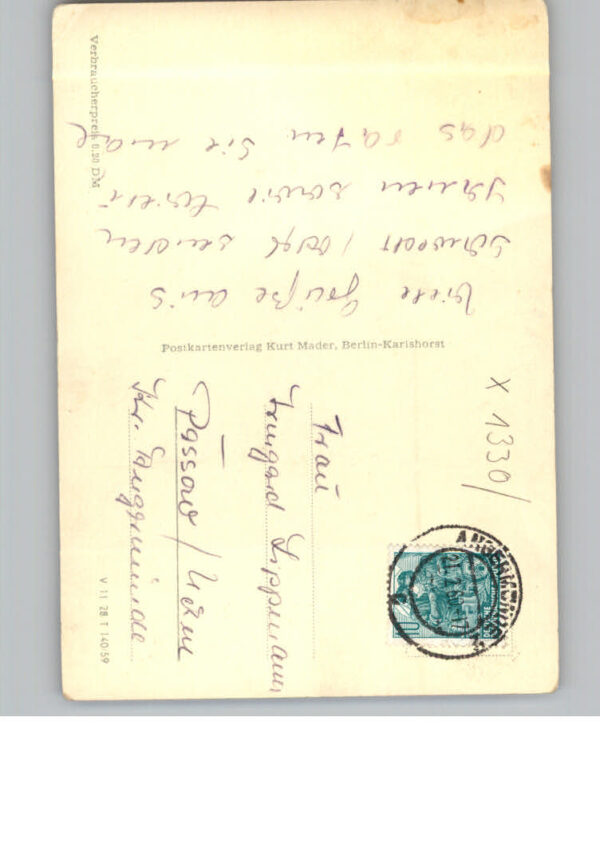 Viele Grüße aus
Schwedt / Oder senden
Ihnen sowie
das raten Sie mal
Postkartenverlag Kurt Mader, Berlin-Karlshorst
Verbraucherpreis 0.20 DM
X 1330/
ANGERMÜNDE
10
DEUTSCHE
Frau
Irmgard Lippmann
Passow / Uckerm
Kr. Angermünde
V 11 28 T 140 59